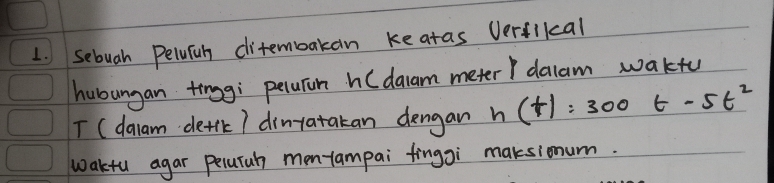 1. Sebuah Peluruh ditembakan keatas Vertikal
hubungan tinggi peluruh h (dalam meter) dalam waktu
T (dalam detik) dinyatakan dengan h (t) = 300 t - 5t²
waktu agar peluruh mentampai tinggi maksimum.